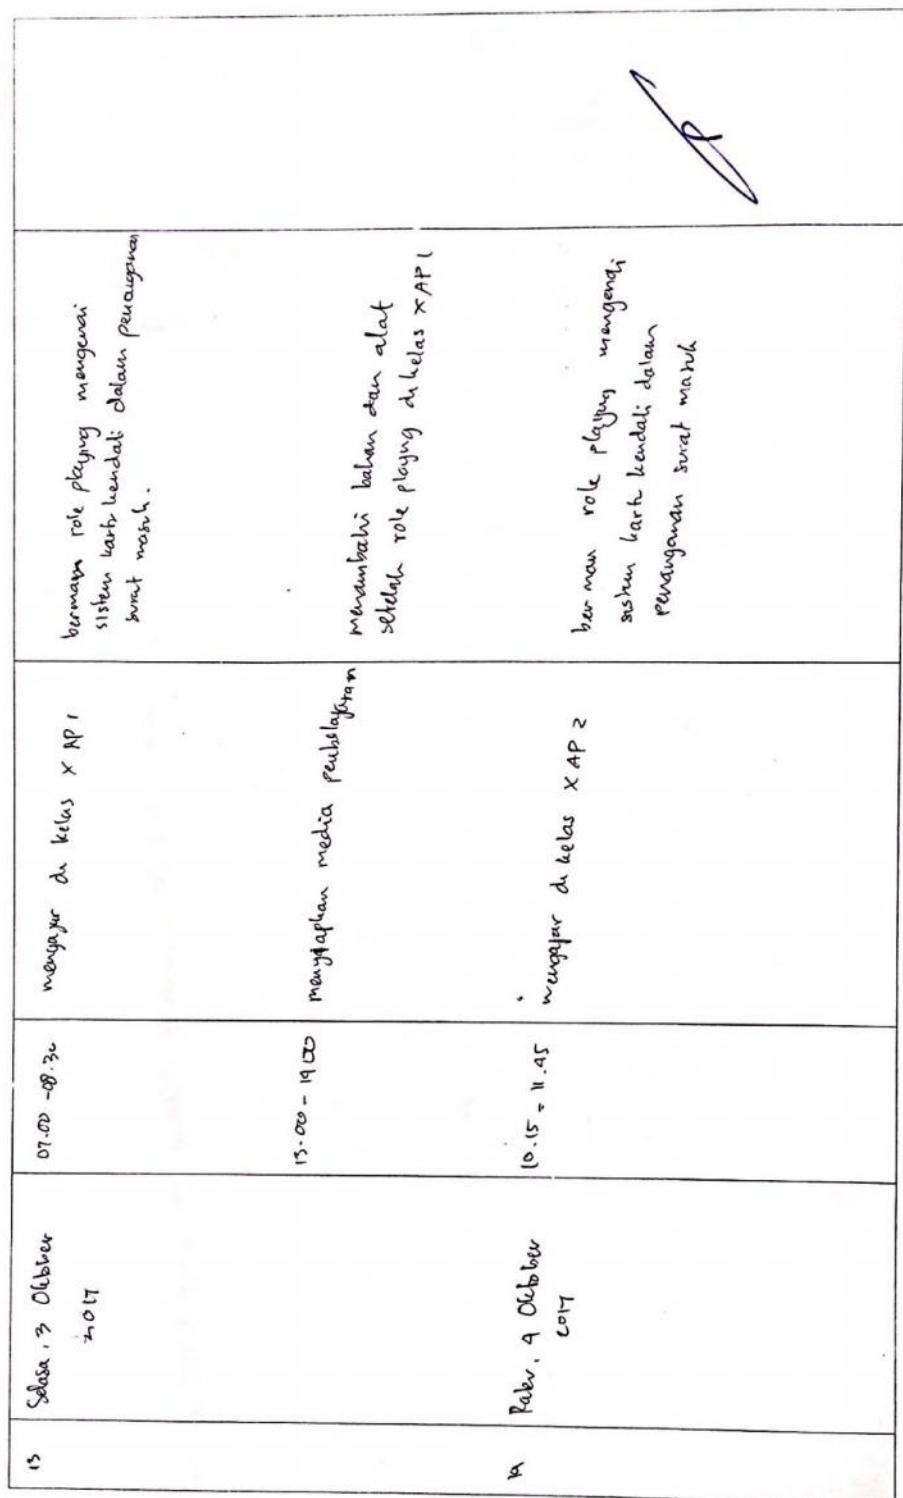 13
Selasa, 3 Oktober
2017
07.00 - 08.30
mengajar di kelas X AP 1
bermain role playing mengenai
sistem kartu kendali dalam penanganan
surat masuk.
13.00 - 14.00
menyiapkan media pembelajaran
menambahi bahan dan alat
setelah role playing di kelas X AP 1
14
Rabu, 4 Oktober
2017
10.15 - 11.45
mengajar di kelas X AP 2
bermain role playing mengenai
sistem kartu kendali dalam
penanganan surat masuk